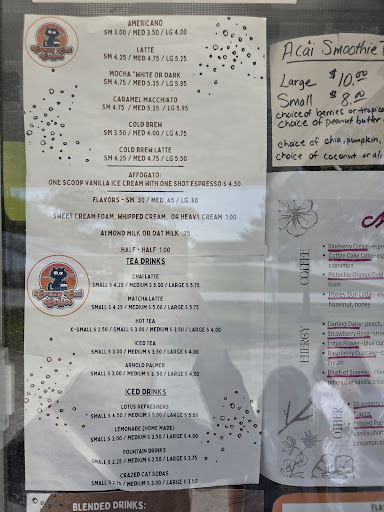 AMERICANO
SM 3.00 / MED 3.50 / LG 4.00
LATTE
SM 4.25 / MED 4.75 / LG 5.25
MOCHA *WHITE OR DARK
SM 4.75 / MED 5.35 / LG 5.95
CARAMEL MACCHIATO
SM 4.75 / MED 5.35 / LG 5.95
COLD BREW
SM 3.50 / MED 4.00 / LG 4.75
COLD BREW LATTE
SM 4.25 / MED 4.75 / LG 5.50
AFFOGATO:
ONE SCOOP VANILLA ICE CREAM WITH ONE SHOT ESPRESSO $ 4.50
FLAVORS - SM .30 / MED .45 / LG .60
SWEET CREAM FOAM, WHIPPED CREAM, OR HEAVY CREAM 1.00
ALMOND MILK OR OAT MILK .75
HALF - HALF 1.00
TEA DRINKS
CHAI LATTE
SMALL $ 4.25 / MEDIUM $ 5.00 / LARGE $ 5.75
MATCHA LATTE
SMALL $ 4.25 / MEDIUM $ 5.00 / LARGE $ 5.75
HOT TEA
X-SMALL $ 2.50 / SMALL $ 3.00 / MEDIUM $ 3.50 / LARGE $ 4.00
ICED TEA
SMALL $ 3.00 / MEDIUM $ 3.50 / LARGE $ 4.00
ARNOLD PALMER
SMALL $ 3.00 / MEDIUM $ 3.50 / LARGE $ 4.00
ICED DRINKS
LOTUS REFRESHERS
SMALL $ 4.00 / MEDIUM $ 5.00 / LARGE $ 5.50
LEMONADE (HOME MADE)
SMALL $ 3.00 / MEDIUM $ 3.50 / LARGE $ 4.00
FOUNTAIN DRINKS
SMALL $ 2.25 / MEDIUM $ 2.50 / LARGE $ 2.75
CRAZED CAT SODAS
SMALL $ 2.75 / MEDIUM $ 3.00 / LARGE $ 3.50
BLENDED DRINKS:
Acai Smoothie
Large $10.00
Small $8.00
choice of berries or tropica
choice of peanut butter
choice of chia, pumpkin,
choice of coconut or al
COFFEE
Blueberry Cream-esp
Coffee Cake Latte-esp
cinnamon
Pistachio Orange Cold
foam
hazelnut, honey
ENERGY
Darling Daisy- peach,
Strawberry Rose- stra
Lotus Flower- blue cu
Raspberry Cupcake-
cream
Blush of Summer- che
OTHER
Strawberry
Frappe
Frosted Pup